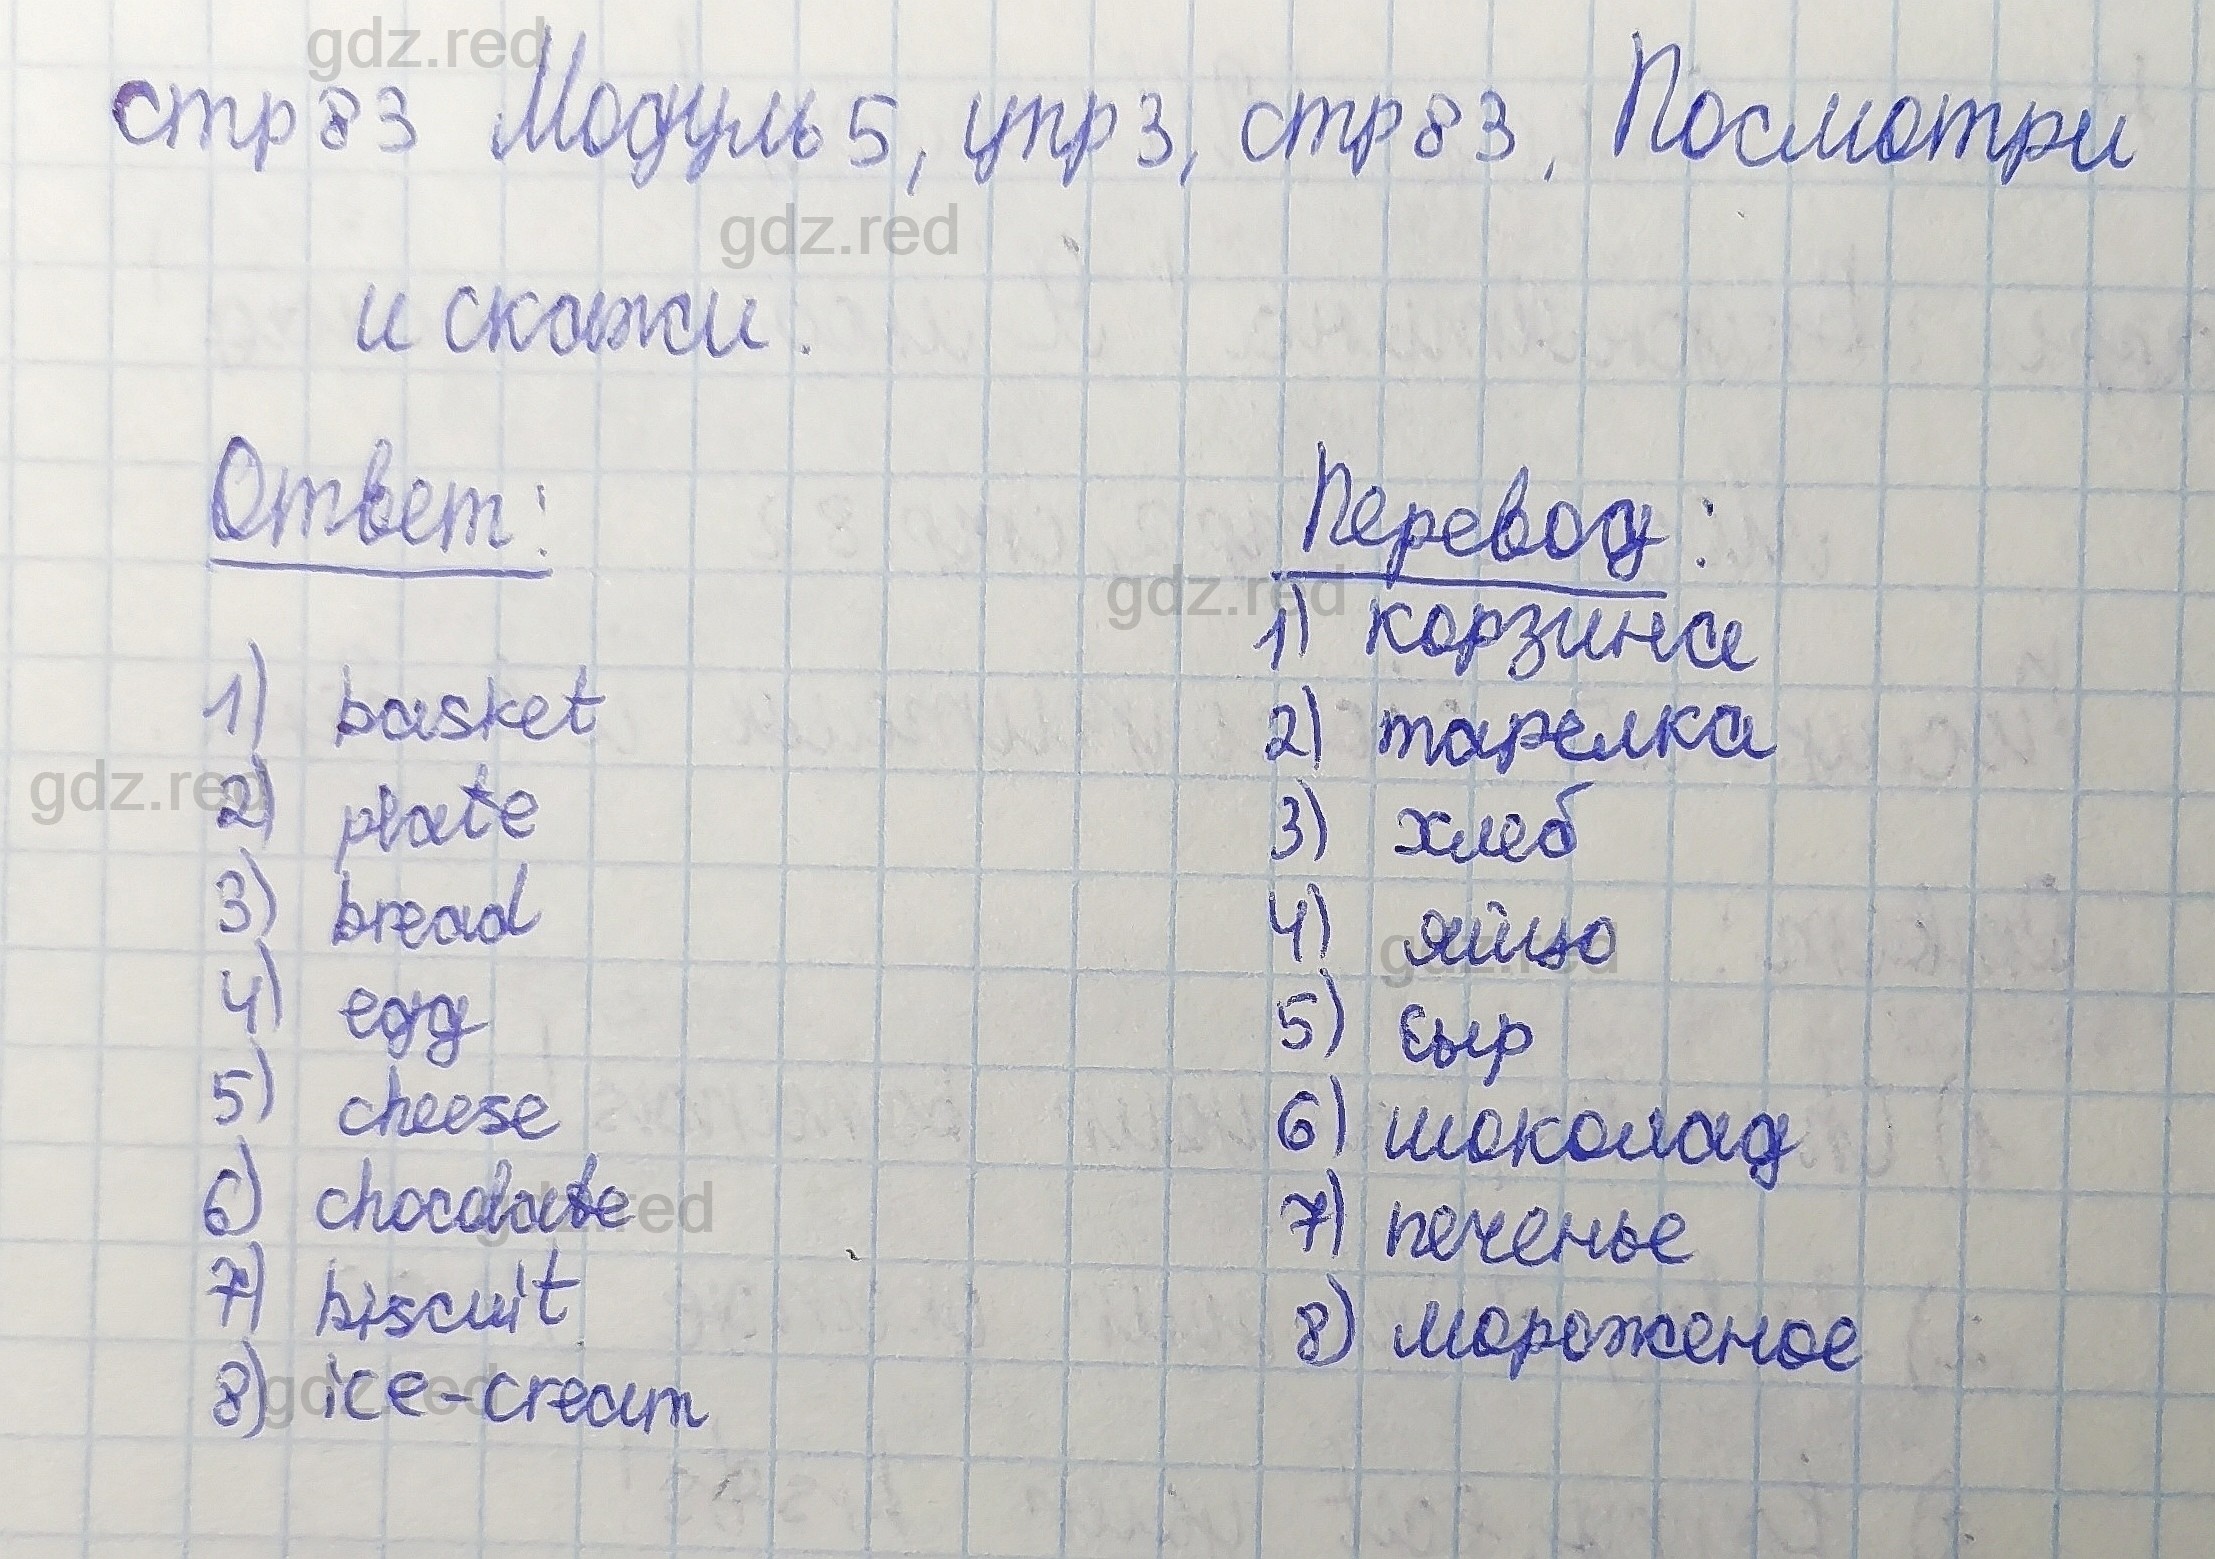 gdz.red
стр 83 Модуль 5, упр 3, стр 83. Посмотри
gdz.red
и скажи.
Ответ:
1) basket
gdz.red
2) plate
3) bread
4) egg
5) cheese
6) chocolate
gdz.red
7) biscuit
8) ice-cream
gdz.red
Перевод:
gdz.red
1) корзина
2) тарелка
3) хлеб
4) яйцо
gdz.red
5) сыр
6) шоколад
7) печенье
8) мороженое